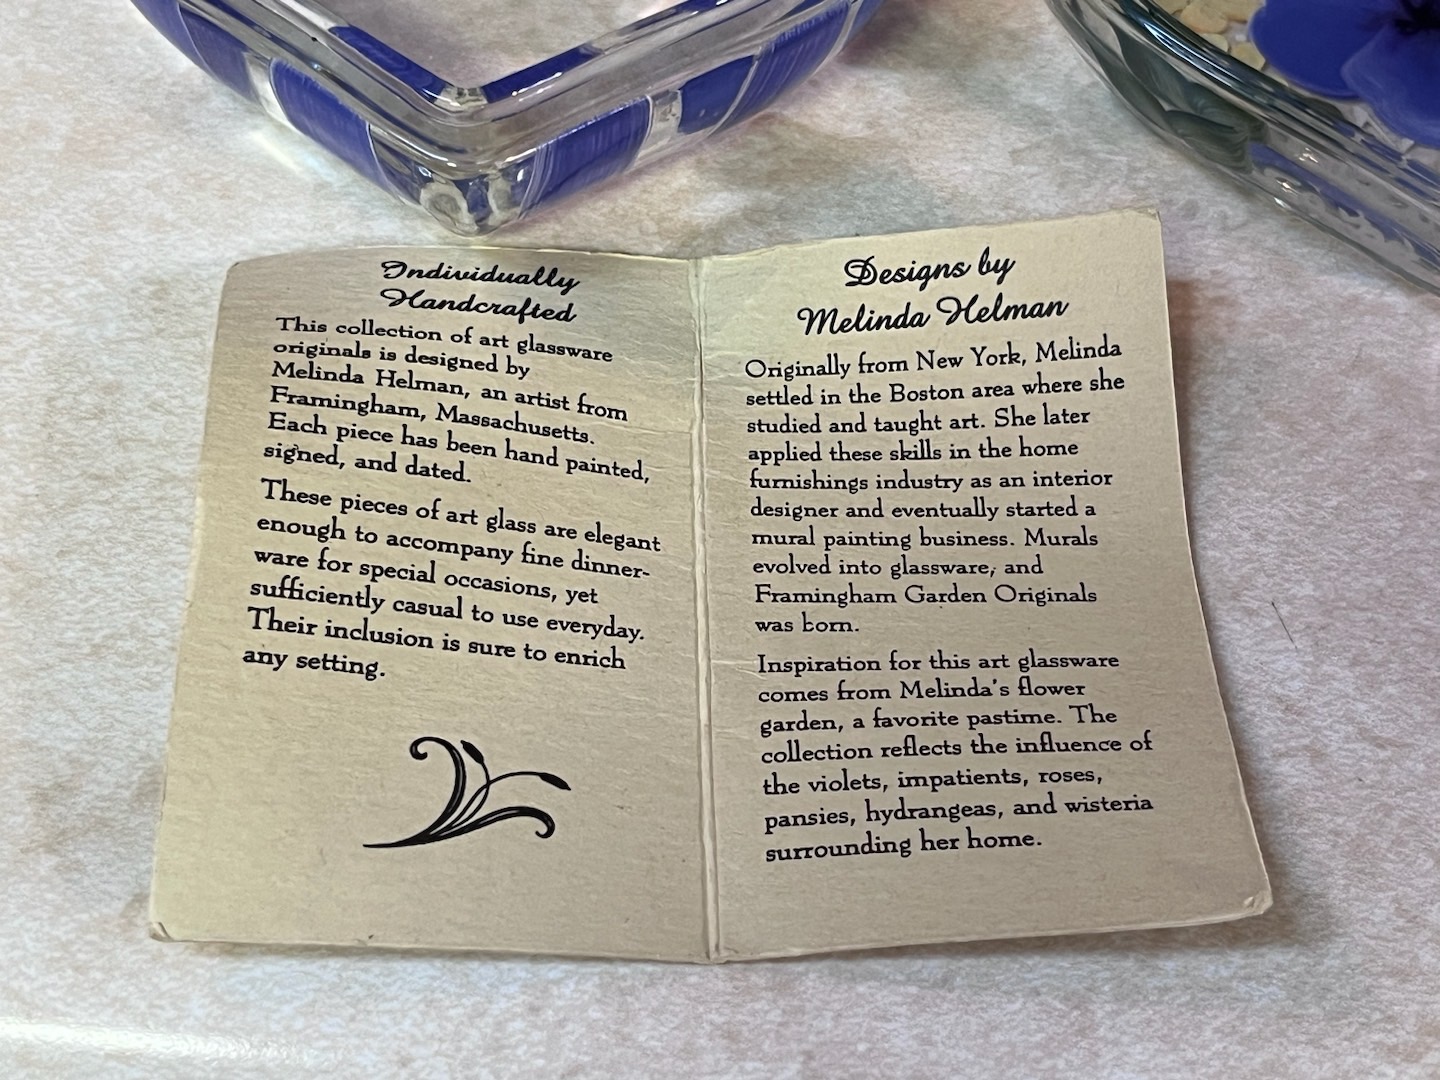 Individually
Handcrafted
This collection of art glassware
originals is designed by
Melinda Helman, an artist from
Framingham, Massachusetts.
Each piece has been hand painted,
signed, and dated.
These pieces of art glass are elegant
enough to accompany fine dinner-
ware for special occasions, yet
sufficiently casual to use everyday.
Their inclusion is sure to enrich
any setting.
Designs by
Melinda Helman
Originally from New York, Melinda
settled in the Boston area where she
studied and taught art. She later
applied these skills in the home
furnishings industry as an interior
designer and eventually started a
mural painting business. Murals
evolved into glassware, and
Framingham Garden Originals
was born.
Inspiration for this art glassware
comes from Melinda's flower
garden, a favorite pastime. The
collection reflects the influence of
the violets, impatients, roses,
pansies, hydrangeas, and wisteria
surrounding her home.